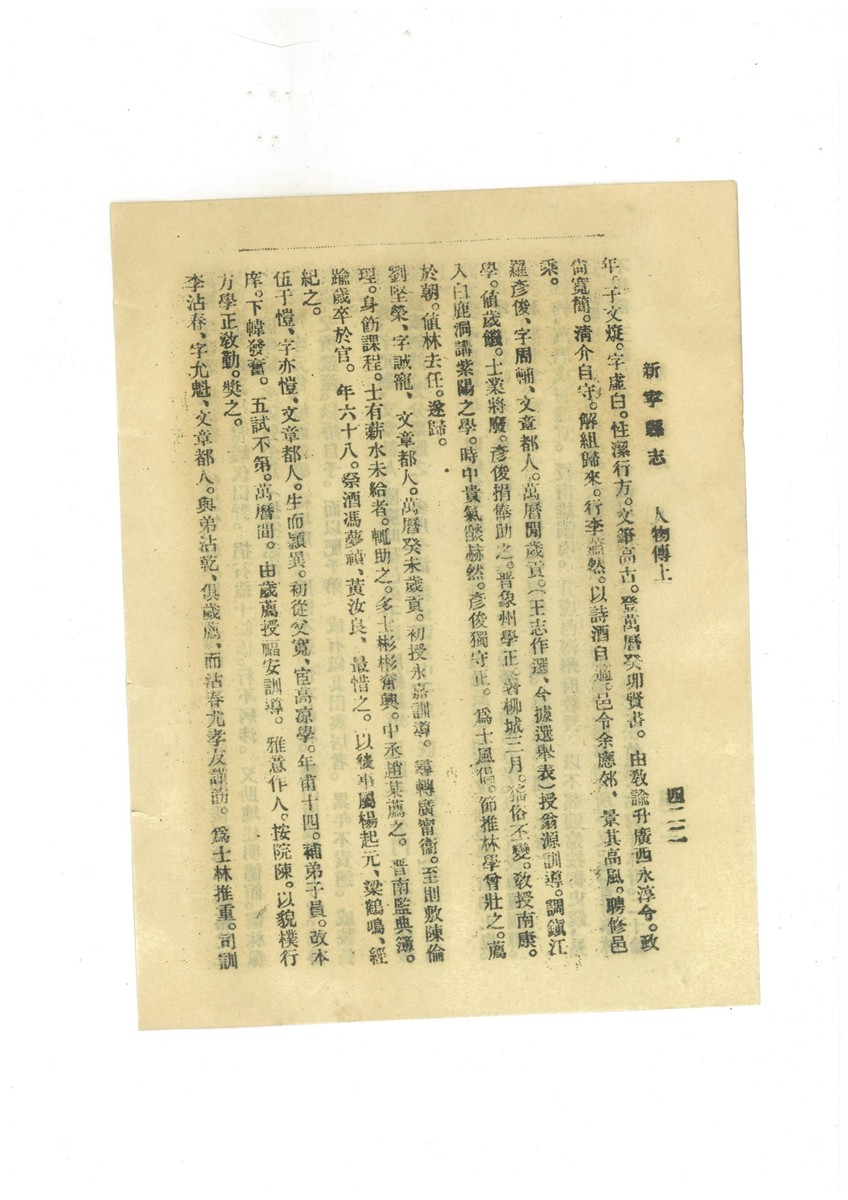 新寧縣志　人物傳上　四二二
年。子文煶。字虛白。性潔行方。文筆高古。登萬曆癸卯賢書。由敎諭升廣西永淳令。政
尙寬簡。清介自守。解組歸來。行李蕭然。以詩酒自適。邑令余應郊、景其高風。聘修邑
乘。
羅彥俊、字周輔、文章都人。萬曆間歲貢。（王志作選、今據選舉表）授翁源訓導。調鎭江
學。値歲饑。士業將廢。彥俊捐俸助之。晋象州學正。署柳城三月。猺俗丕變。敎授南康。
入白鹿洞講紫陽之學。時中貴氣燄赫然。彥俊獨守正。爲士風倡。節推林學曾壯之。薦
於朝。値林去任。遂歸。
劉堅榮、字誠寵、文章都人。萬曆癸未歲貢。初授永嘉訓導。尋轉廣甯衞。至則敷陳倫
理。身飭課程。士有薪水未給者。輒助之。多士彬彬奮興。中丞趙某薦之。晋南監典簿。
踰歲卒於官。年六十八。祭酒馮夢禎、黃汝良、最惜之。以後事屬楊起元、梁鶴鳴、經
紀之。
伍于愷、字亦愷、文章都人。生而穎異。初從父寬、宦高凉學。年甫十四。補弟子員。改本
庠。下幃發奮。五試不第。萬曆間。由歲薦授福安訓導。雅意作人。按院陳。以貌樸行
方學正敎勤。獎之。
李沾春、字允魁、文章都人。與弟沾乾、俱歲薦、而沾春尤孝友謹飭。爲士林推重。司訓